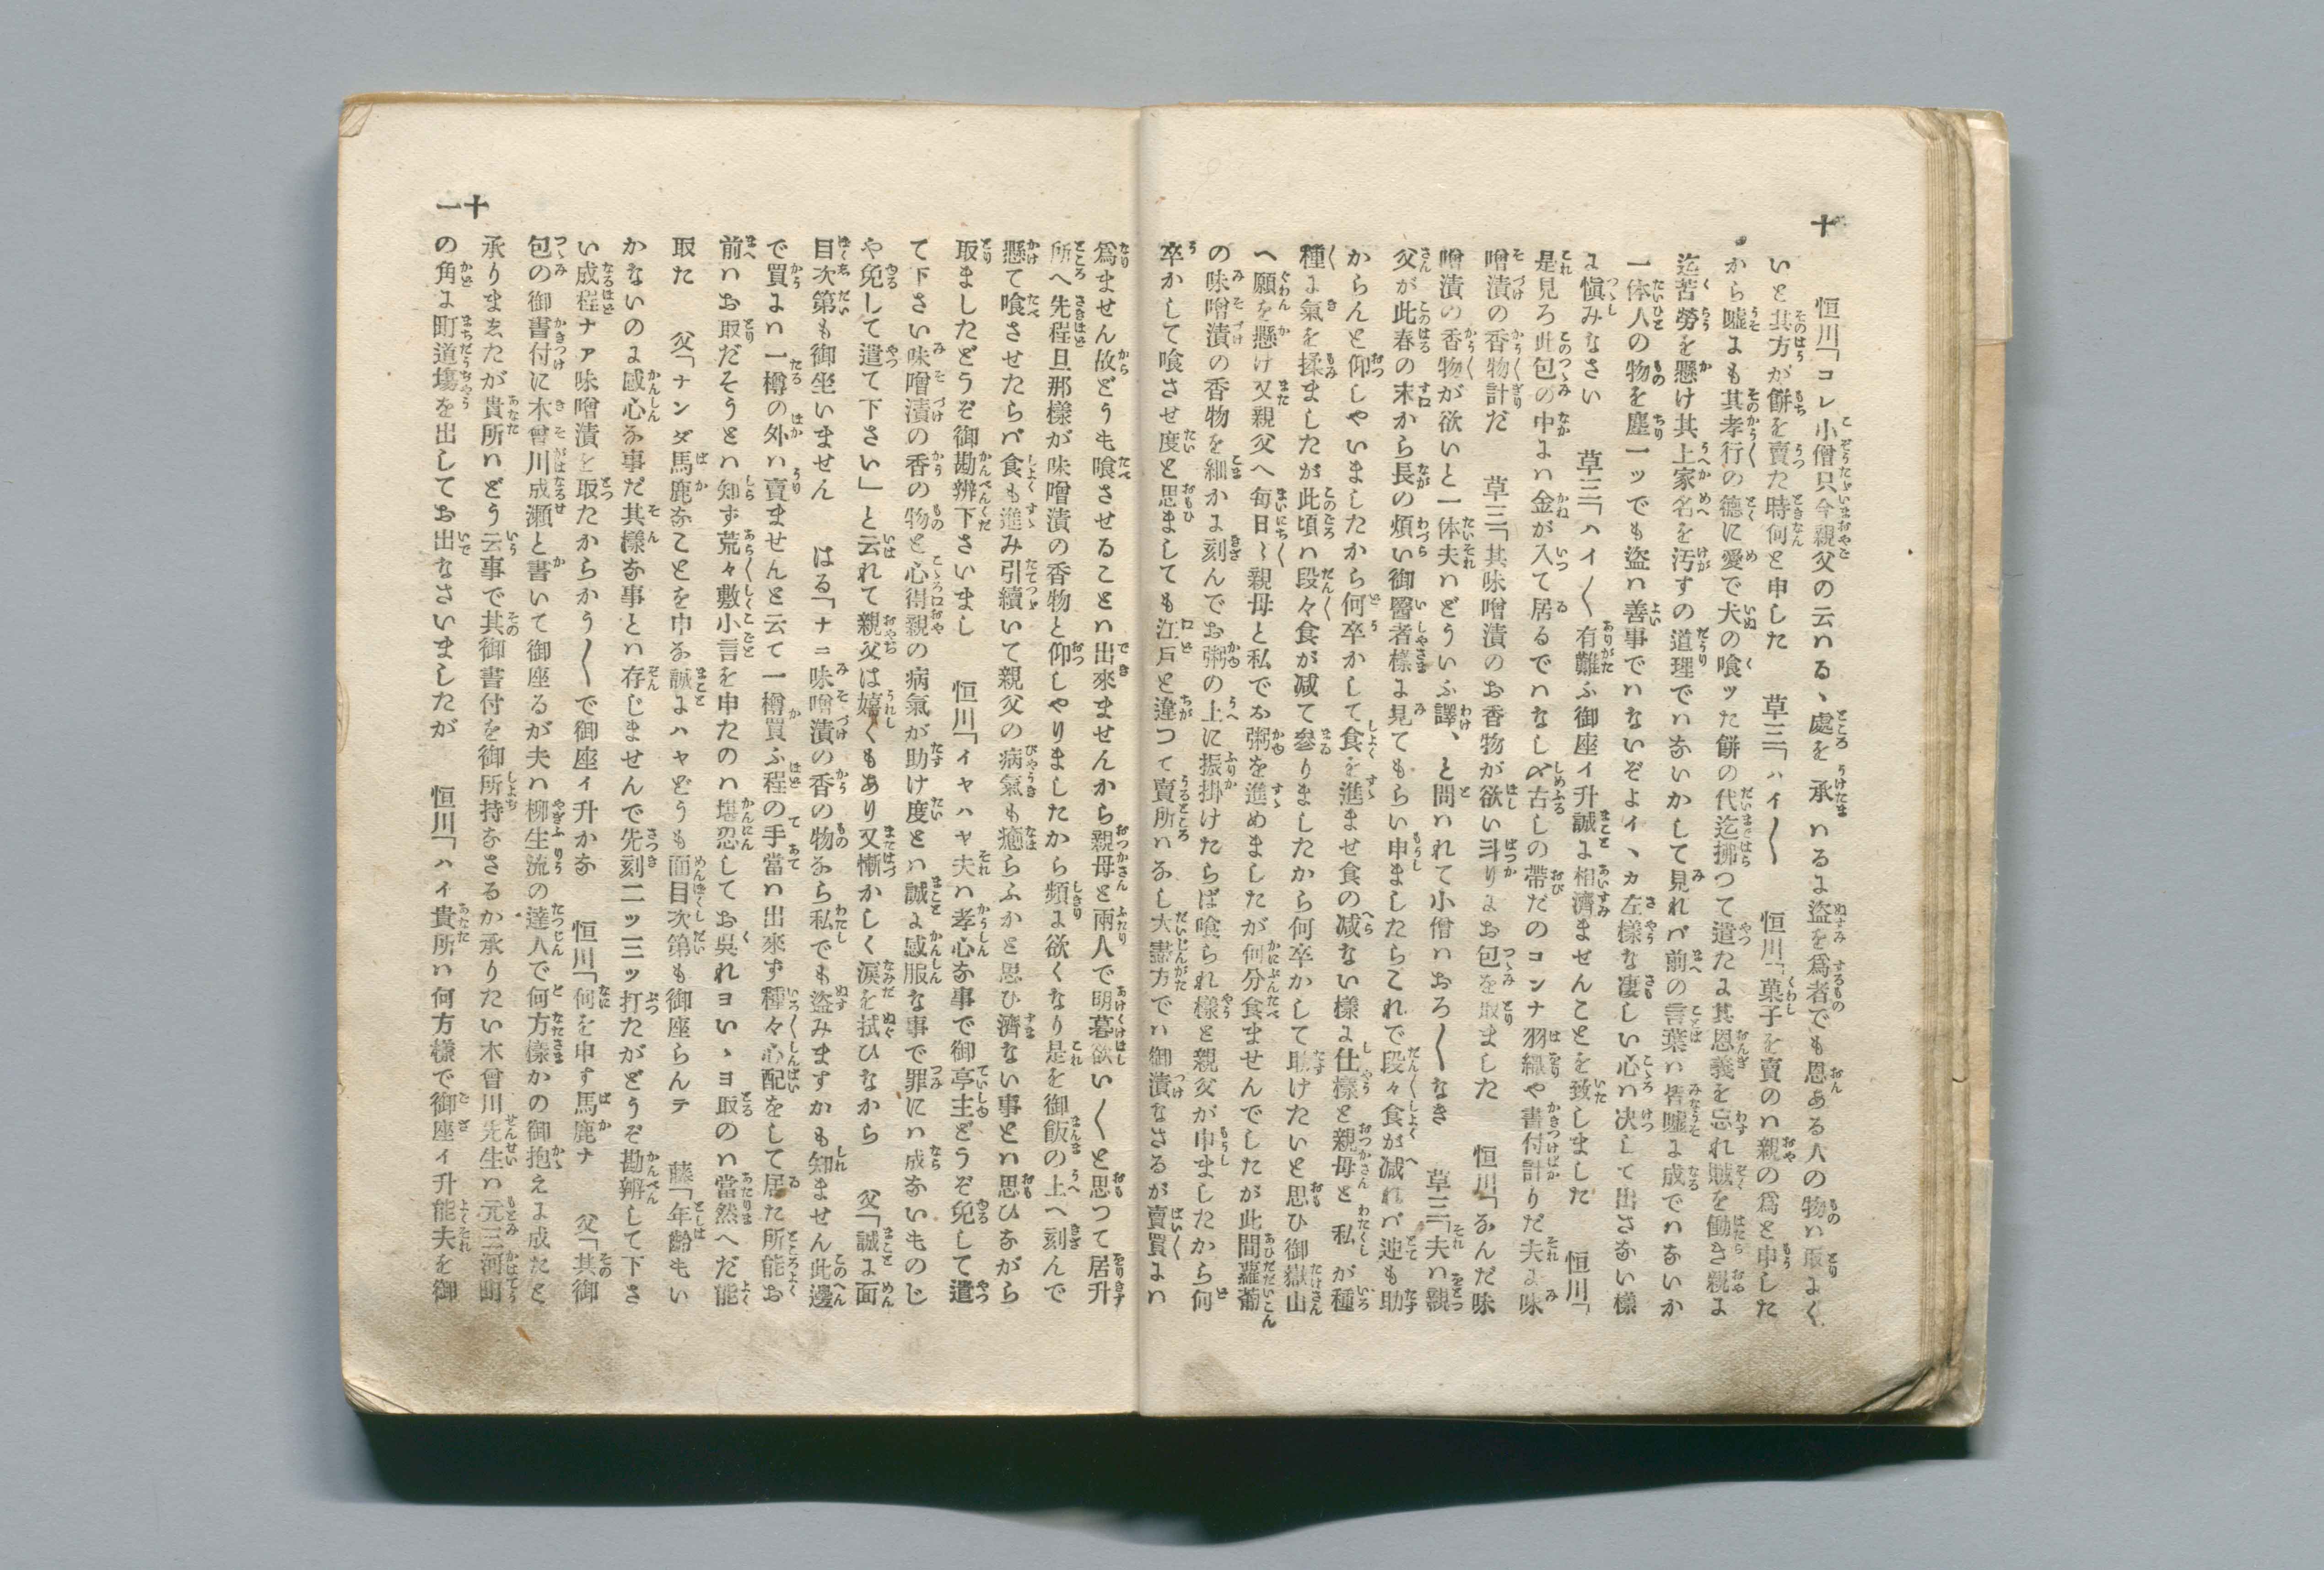 十
恒川「コレ小僧只今親父の云ハるゝ處を承ハるに盗を爲者でも恩ある人の物ハ取にく
いと其方が餅を賣た時何と申した 草三「ハイ〳〵 恒川「菓子を賣のハ親の爲と申した
から嘘にも其孝行の德に愛で犬の喰ッた餅の代迄拂つて遣たに其恩義を忘れ賊を働き親に
迄苦勞を懸け其上家名を汚すの道理でハないかして見れバ前の言葉ハ皆嘘に成でハないか
一体人の物を塵一ッでも盗ハ善事でハないぞよイヽカ左樣な凄しい心ハ决して出さない樣
に愼みなさい 草三「ハイ〳〵有難ふ御座イ升誠に相濟ませんことを致しました 恒川「
是見ろ此包の中にハ金が入て居るでハなし〆古しの帶だのコンナ羽織や書付計りだ夫に味
噌漬の香物計だ 草三「其味噌漬のお香物が欲い斗りにお包を取ました 恒川「なんだ味
噌漬の香物が欲いと一体夫ハどういふ譯、と問ハれて小僧ハおろ〳〵なき 草三「夫ハ親
父が此春の末から長の煩い御醫者樣に見てもらい申ましたらこれで段々食が减れバ迚も助
からんと仰しやいましたから何卒かして食を進ませ食の减ない樣に仕樣と親母と私が種
種に氣を揉ましたが此頃ハ段々食が减て參りましたから何卒かして助けたいと思ひ御嶽山
へ願を懸け又親父へ毎日〳〵親母と私でお粥を進めましたが何分食ませんでしたが此間蘿蔔
の味噌漬の香物を細かに刻んでお粥の上に振掛けたらば喰られ樣と親父が申ましたから何
卒かして喰させ度と思ましても江戸と違つて賣所ハなし大盡方でハ御漬なさるが賣買にハ
十一
爲ません故どうも喰させることハ出來ませんから親母と兩人で明暮欲い〳〵と思つて居升
所へ先程旦那樣が味噌漬の香物と仰しやりましたから頻に欲くなり是を御飯の上へ刻んで
懸て喰させたらバ食も進み引續いて親父の病氣も癒らふかと思ひ濟ない事とハ思ひながら
取ましたどうぞ御勘辨下さいまし 恒川「イヤハヤ夫ハ孝心な事で御亭主どうぞ免して遣
て下さい味噌漬の香の物と心得親の病氣が助け度とハ誠に感服な事で罪にハ成ないものじ
や免して遣て下さい」と云れて親父は嬉くもあり又慚かしく涙を拭ひなから 父「誠に面
目次第も御坐いません はる「ナニ味噌漬の香の物なら私でも盗みますかも知ません此邊
で買にハ一樽の外ハ賣ませんと云て一樽買ふ程の手當ハ出來ず種々心配をして居た所能お
前ハお取だそうとハ知ず荒々敷小言を申たのハ堪忍してお呉れヨいゝヨ取のハ當然へだ能
取た 父「ナンダ馬鹿なことを申な誠にハヤどうも面目次第も御座らんテ 藤「年齡もい
かないのに感心な事だ其樣な事とハ存じませんで先刻二ッ三ッ打たがどうぞ勘辨して下さ
い成程ナァ味噌漬を取たからかう〳〵で御座ィ升かな 恒川「何を申す馬鹿ナ 父「其御
包の御書付に木曾川成瀬と書いて御座るが夫ハ柳生流の達人で何方樣かの御抱えに成たと
承りまゑたが貴所ハどう云事で其御書付を御所持なさるか承りたい木曾川先生ハ元三河町
の角に町道塲を出してお出なさいましたが 恒川「ハイ貴所ハ何方樣で御座ィ升能夫を御